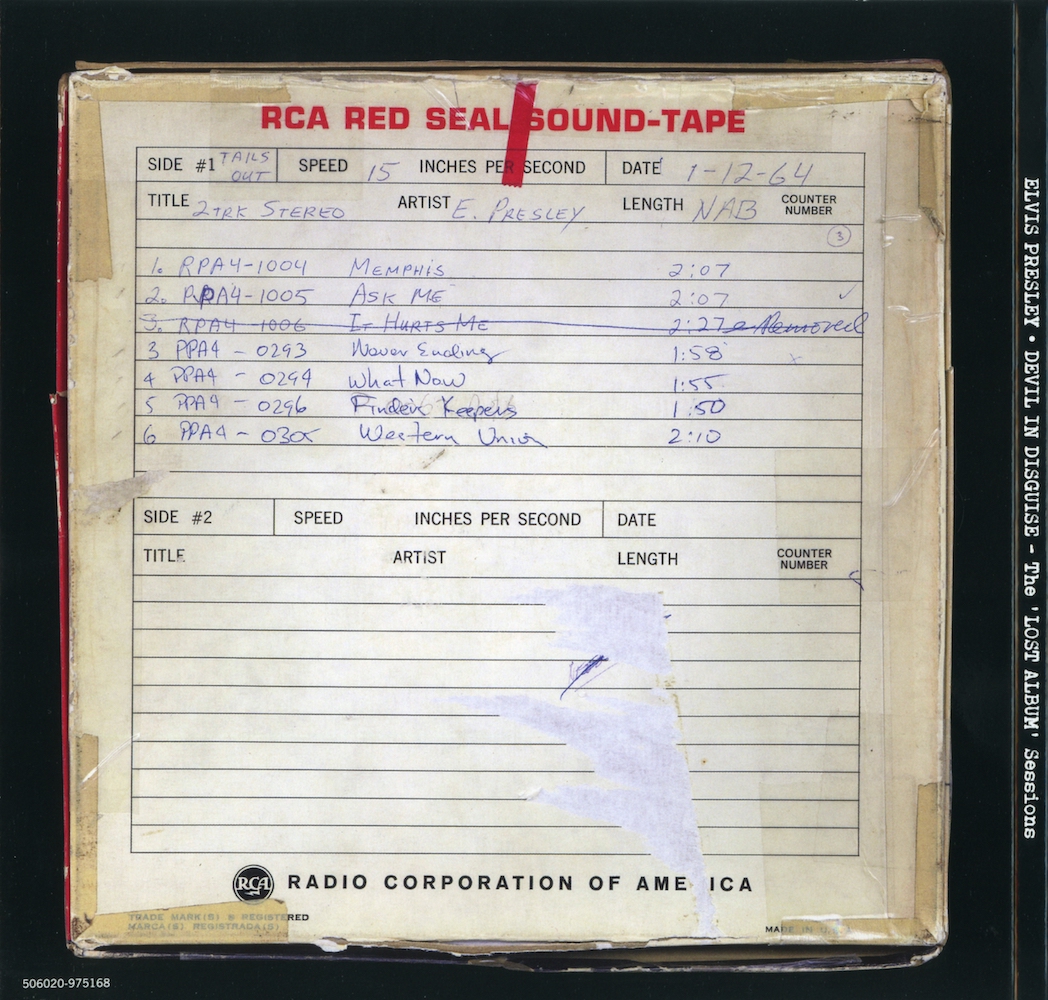 RCA RED SEAL SOUND-TAPE
SIDE #1 TAILS OUT SPEED 15 INCHES PER SECOND DATE 1-12-64
TITLE 2TRK STEREO ARTIST E. PRESLEY LENGTH NAB COUNTER NUMBER
3
1. RPA4-1004 MEMPHIS 2:07
2. RPA4-1005 ASK ME 2:07 ✓
3. RPA4-1006 IT HURTS ME 2:27 Removed
3 PPA4 - 0293 Never Ending 1:58 x
4 PPA4 - 0294 What Now 1:55
5 PPA4 - 0296 Finders Keepers 1:50
6 PPA4 - 0305 Western Union 2:10
SIDE #2 SPEED INCHES PER SECOND DATE
TITLE ARTIST LENGTH COUNTER NUMBER
RCA RADIO CORPORATION OF AME ICA
TRADE MARK(S) ® REGISTERED
MARCA(S) REGISTRADA(S)
MADE IN U.S.
506020-975168
ELVIS PRESLEY • DEVIL IN DISGUISE - The 'LOST ALBUM' Sessions